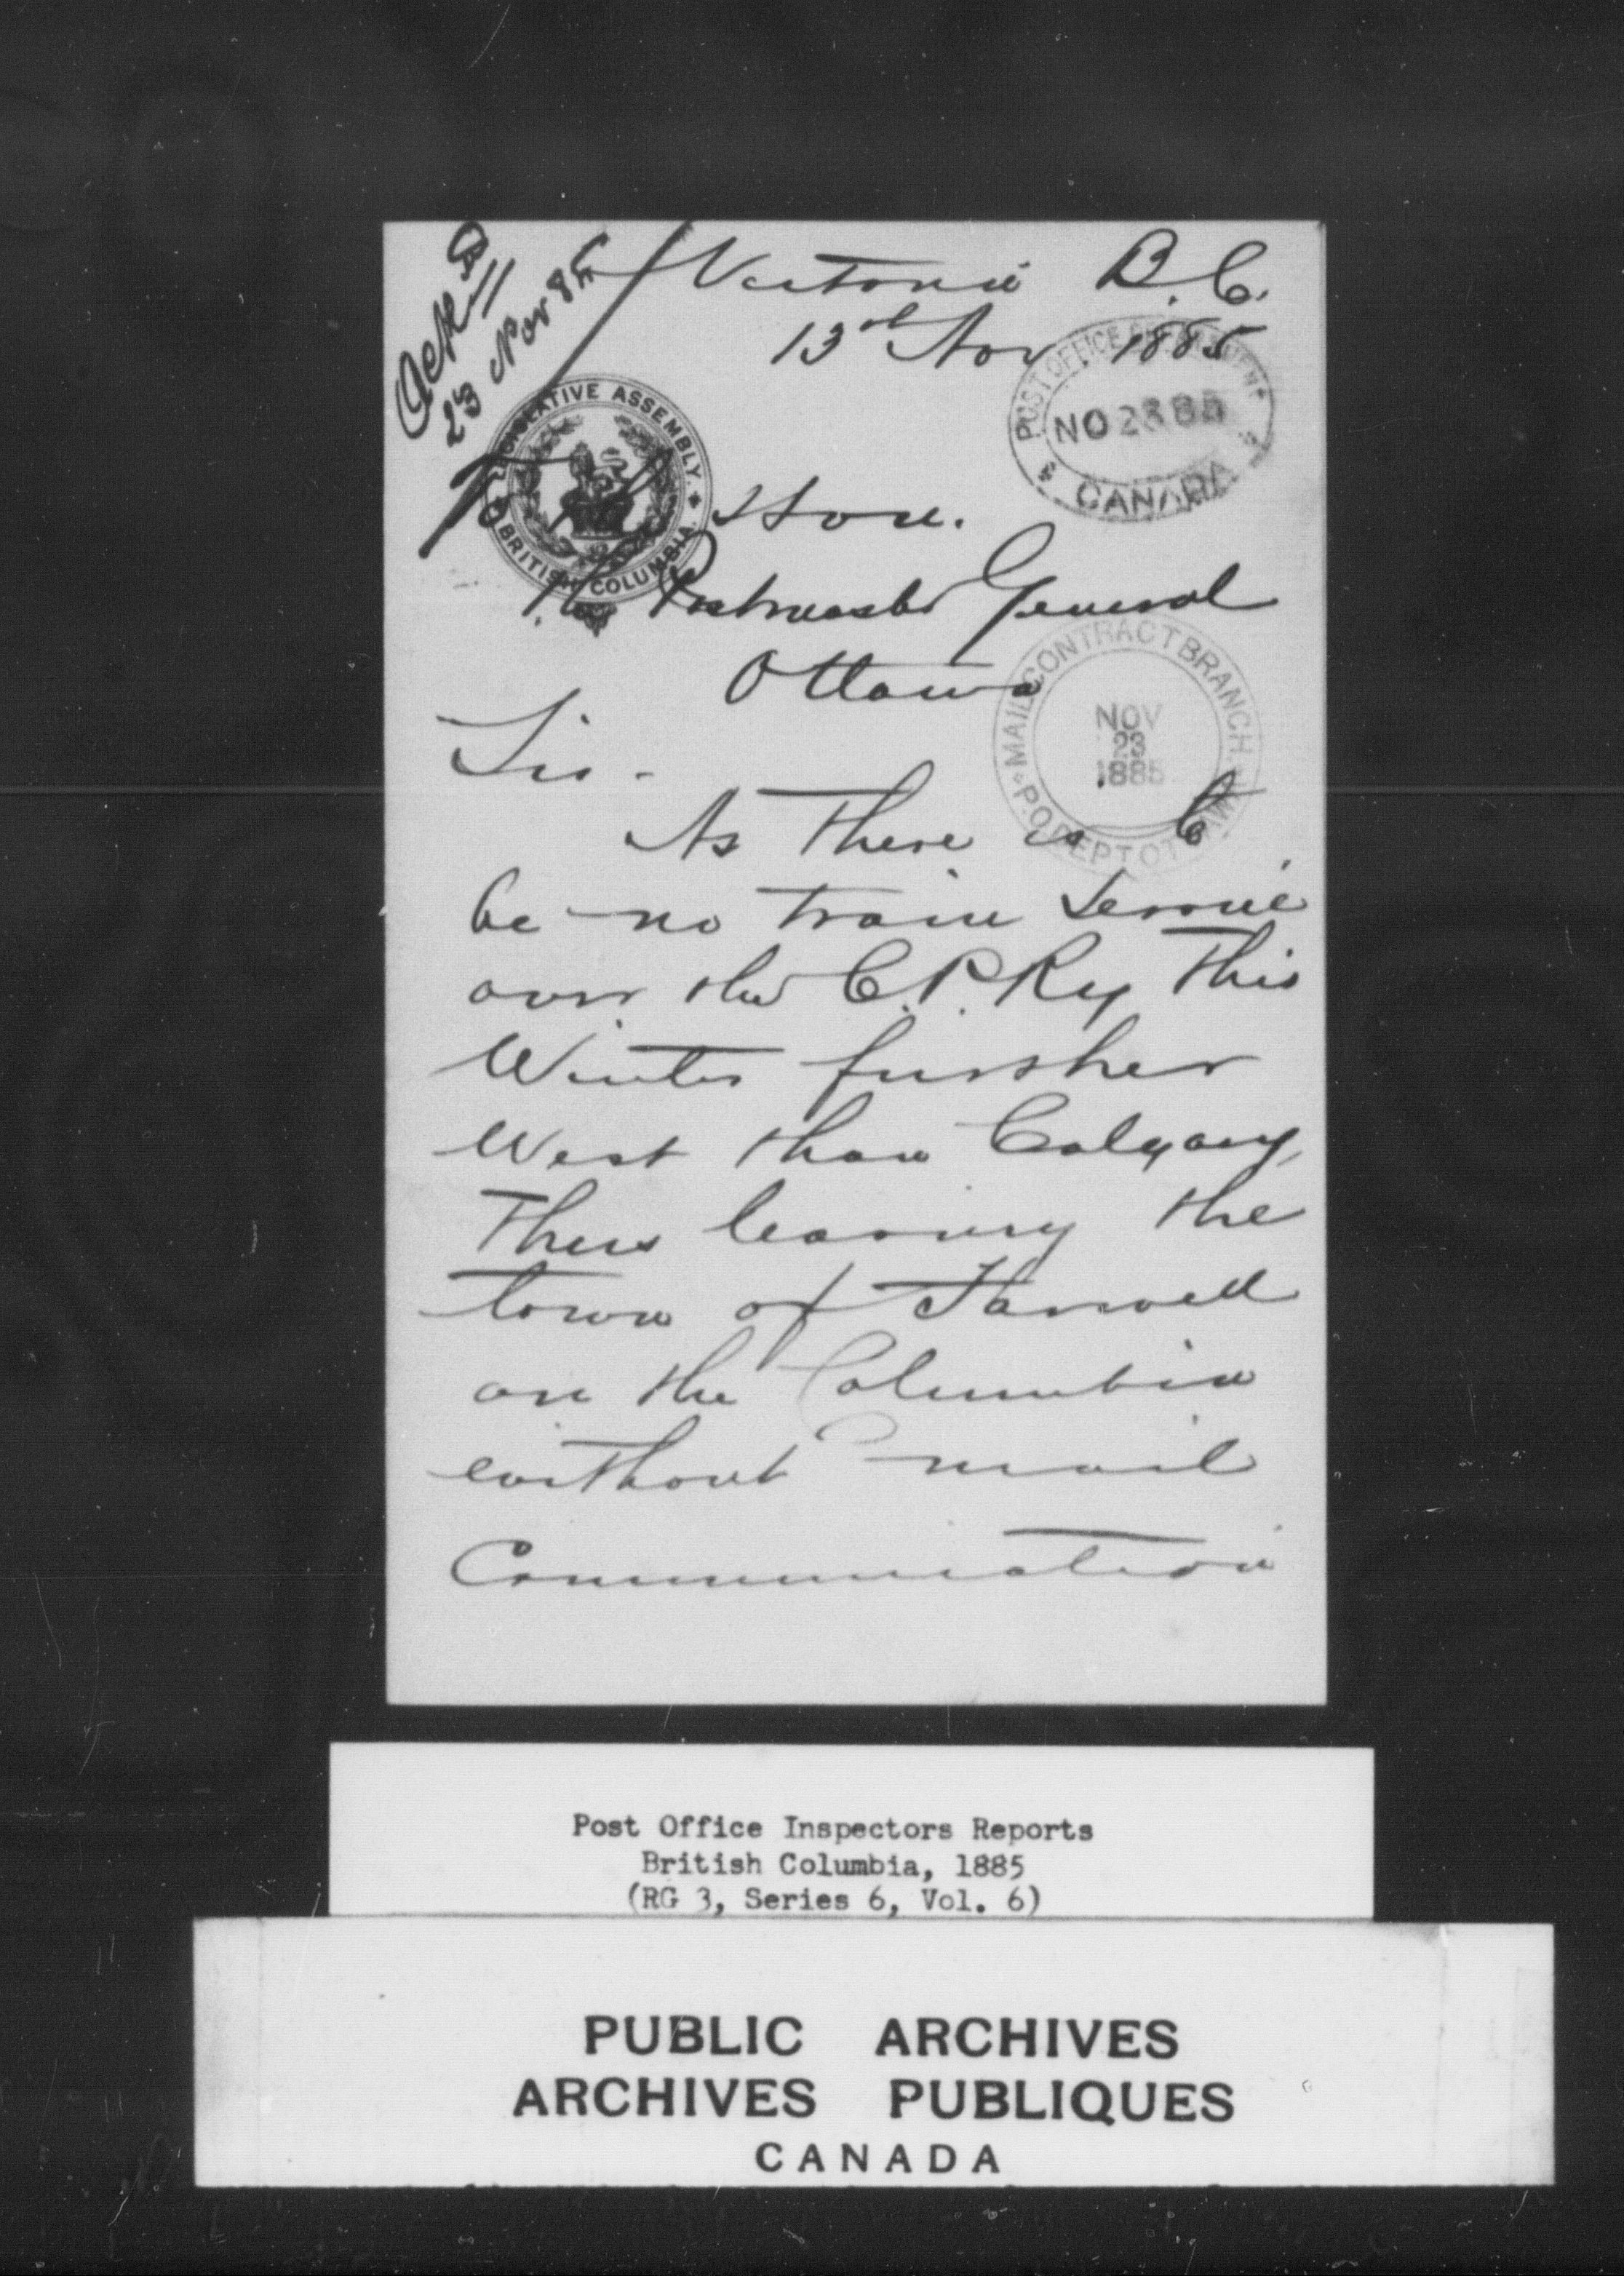 Ackd
23 Nov 85
Victoria B.C.
13th Nov 1885
POST OFFICE DEPARTMENT
NO 23 85
CANADA
LEGISLATIVE ASSEMBLY.
BRITISH COLUMBIA
To the Hon.
The Postmaster General
Ottawa
MAIL CONTRACT BRANCH
NOV
23
1885
P.O. DEPT OTTAWA
Sir.
As there is to
be no train service
over the C.P.Ry this
Winter further
West than Calgary,
Thus leaving the
town of Farwell
on the Columbia
without mail
Communication
Post Office Inspectors Reports
British Columbia, 1885
(RG 3, Series 6, Vol. 6)
PUBLIC ARCHIVES
ARCHIVES PUBLIQUES
CANADA